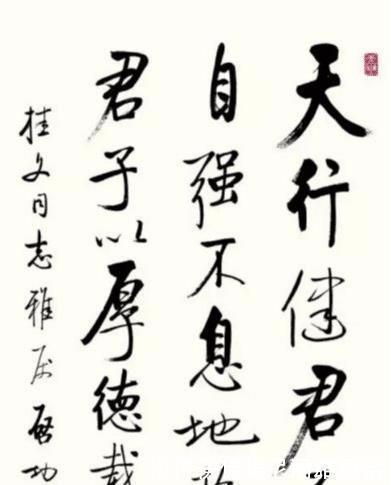 天行健君
自强不息地
君子以厚德载
桂文同志雅属 启功